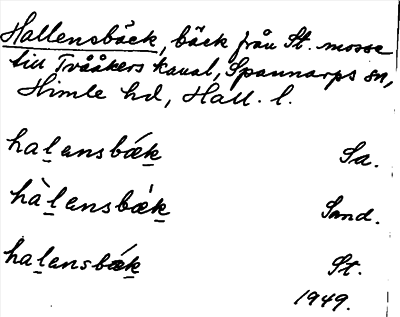 Hallensbäck, bäck från St. mosse
till Tvååkers kanal, Spannarps sn,
Himle hd, Hall. l.
halensbǽk Sa.
hàlensbǽk Sand.
halensbǽk St.
1949.